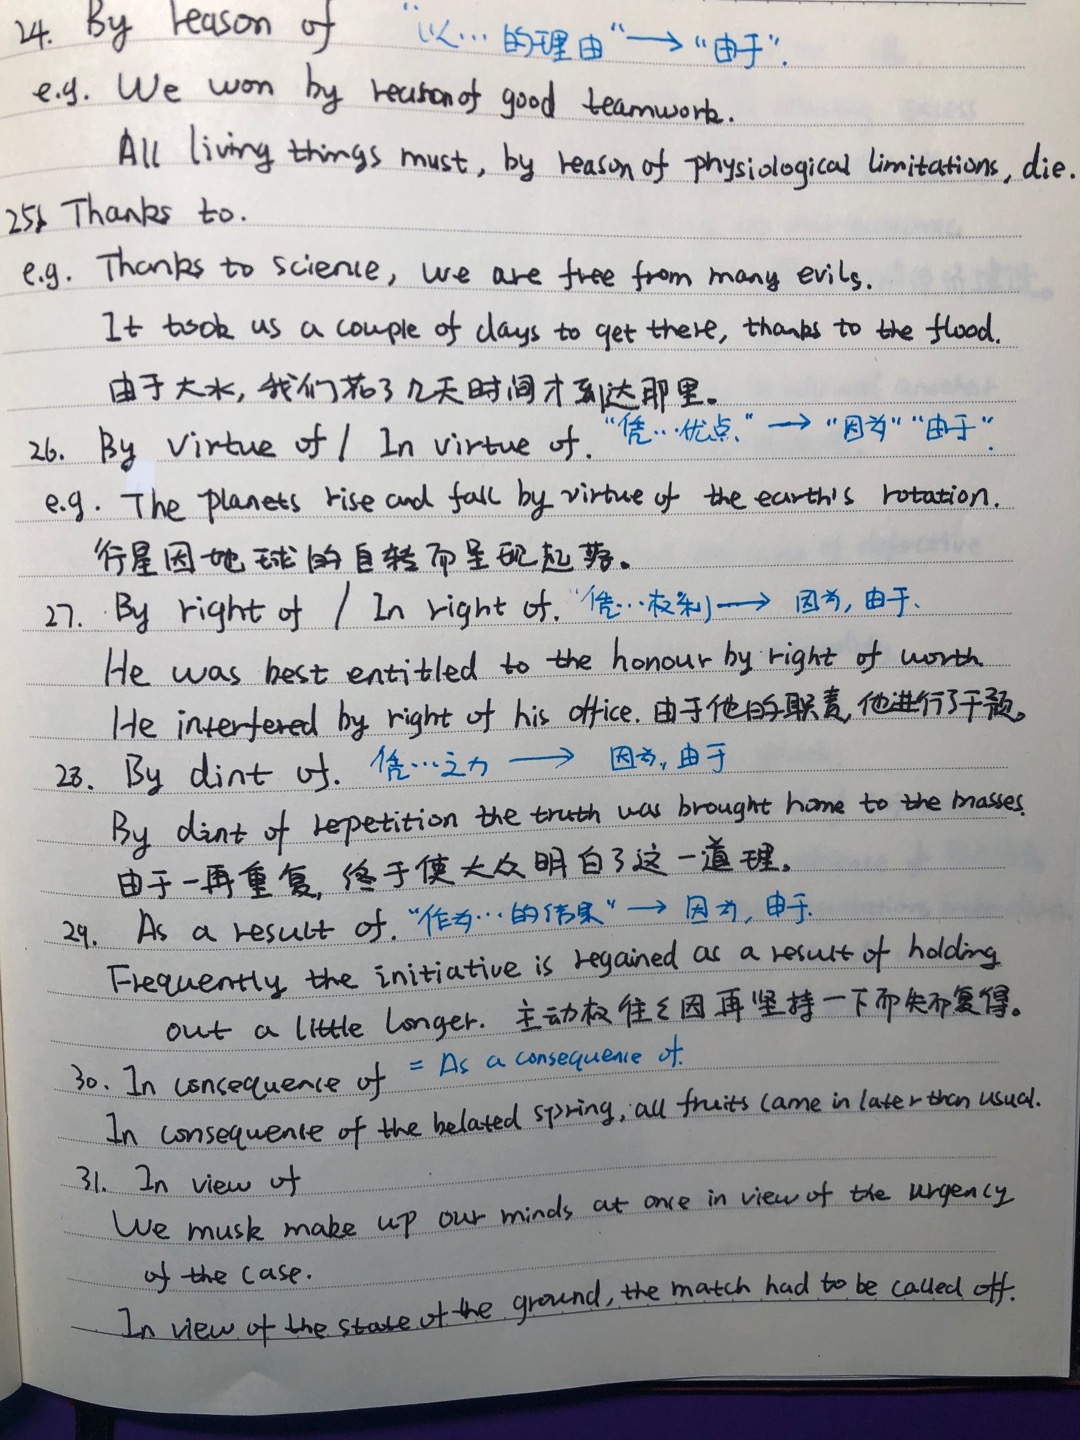 24. By reason of "以…的理由"→"由于".
e.g. We won by reason of good teamwork.
All living things must, by reason of physiological limitations, die.
25. Thanks to.
e.g. Thanks to science, we are free from many evils.
It took us a couple of days to get there, thanks to the flood.
由于大水,我们花了几天时间才到达那里。
26. By virtue of / In virtue of. "凭…优点."→"因为""由于".
e.g. The planets rise and fall by virtue of the earth's rotation.
行星因地球的自转而呈现起落。
27. By right of / In right of. "凭…权利→ 因为,由于.
He was best entitled to the honour by right of worth
He interfered by right of his office. 由于他的职责,他进行了干预。
28. By dint of. 凭…之力 → 因为,由于
By dint of repetition the truth was brought home to the masses.
由于一再重复,终于使大众明白了这一道理。
29. As a result of. "作为…的结果"→ 因为,由于.
Frequently the initiative is regained as a result of holding
out a little longer. 主动权往往因再坚持一下而失而复得。
30. In consequence of = As a consequence of.
In consequence of the belated spring, all fruits came in later than usual.
31. In view of
We musk make up our minds at once in view of the urgency
of the case.
In view of the state of the ground, the match had to be called off.